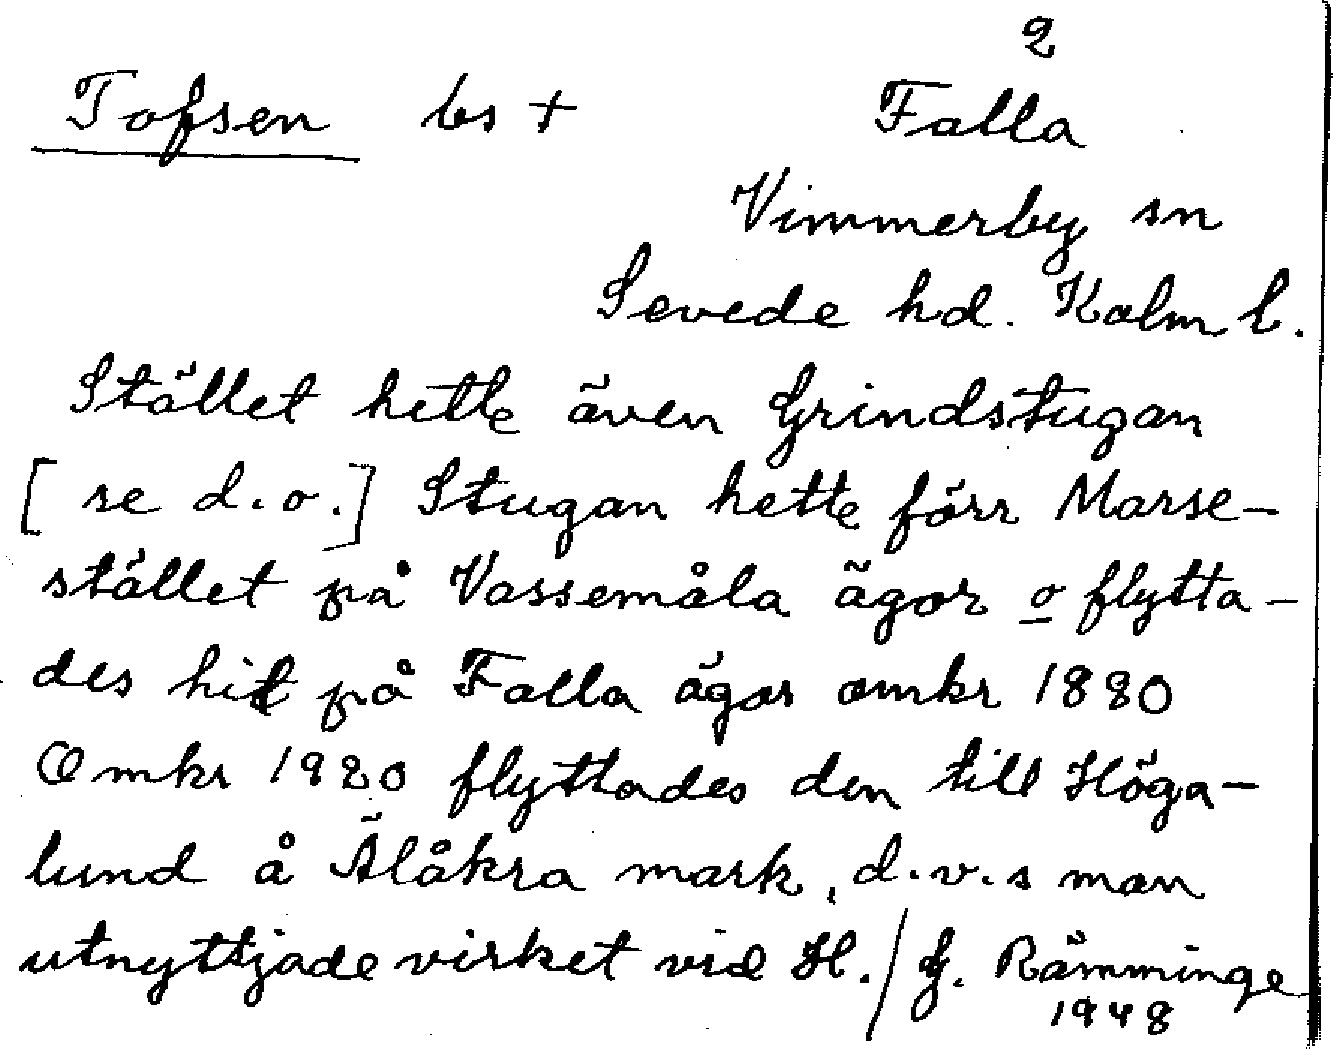 2
Tofsen bs + Falla
Vimmerby sn
Sevede hd. Kalm l.
Stället hette även Grindstugan
[se d.o.] Stugan hette förr Marse-
stället på Vassemåla ägor o flytta-
des hit på Falla ägor omkr 1880
Omkr 1920 flyttades den till Höga-
lund å Älåkra mark, d.v.s man
utnyttjade virket vid H. / G. Rämminge
1948